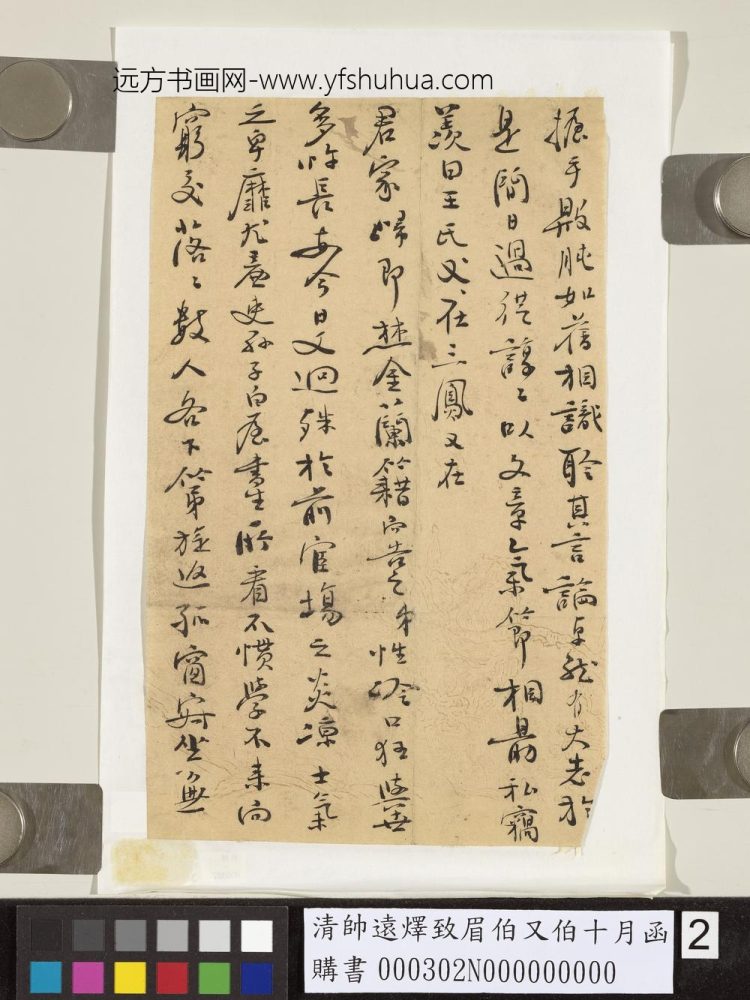 远方书画网-www.yfshuhua.com
握手殷肫如舊相識聆其言論卓然有大志於
是閒日過從諄〻以文章氣節相勗私竊
羨曰王氏父〻在三鳳又在
君家歸即焚金蘭籍而告之弟性冷口狂與世
多忤長安今日又迥殊於前官場之炎涼士氣
之卑靡尤臺吏孫子白屋書生所看不慣學不來向
窮交落〻數人各下第旋返孤窗寂坐
清帥遠燡致眉伯又伯十月函
購書 000302N000000000
2